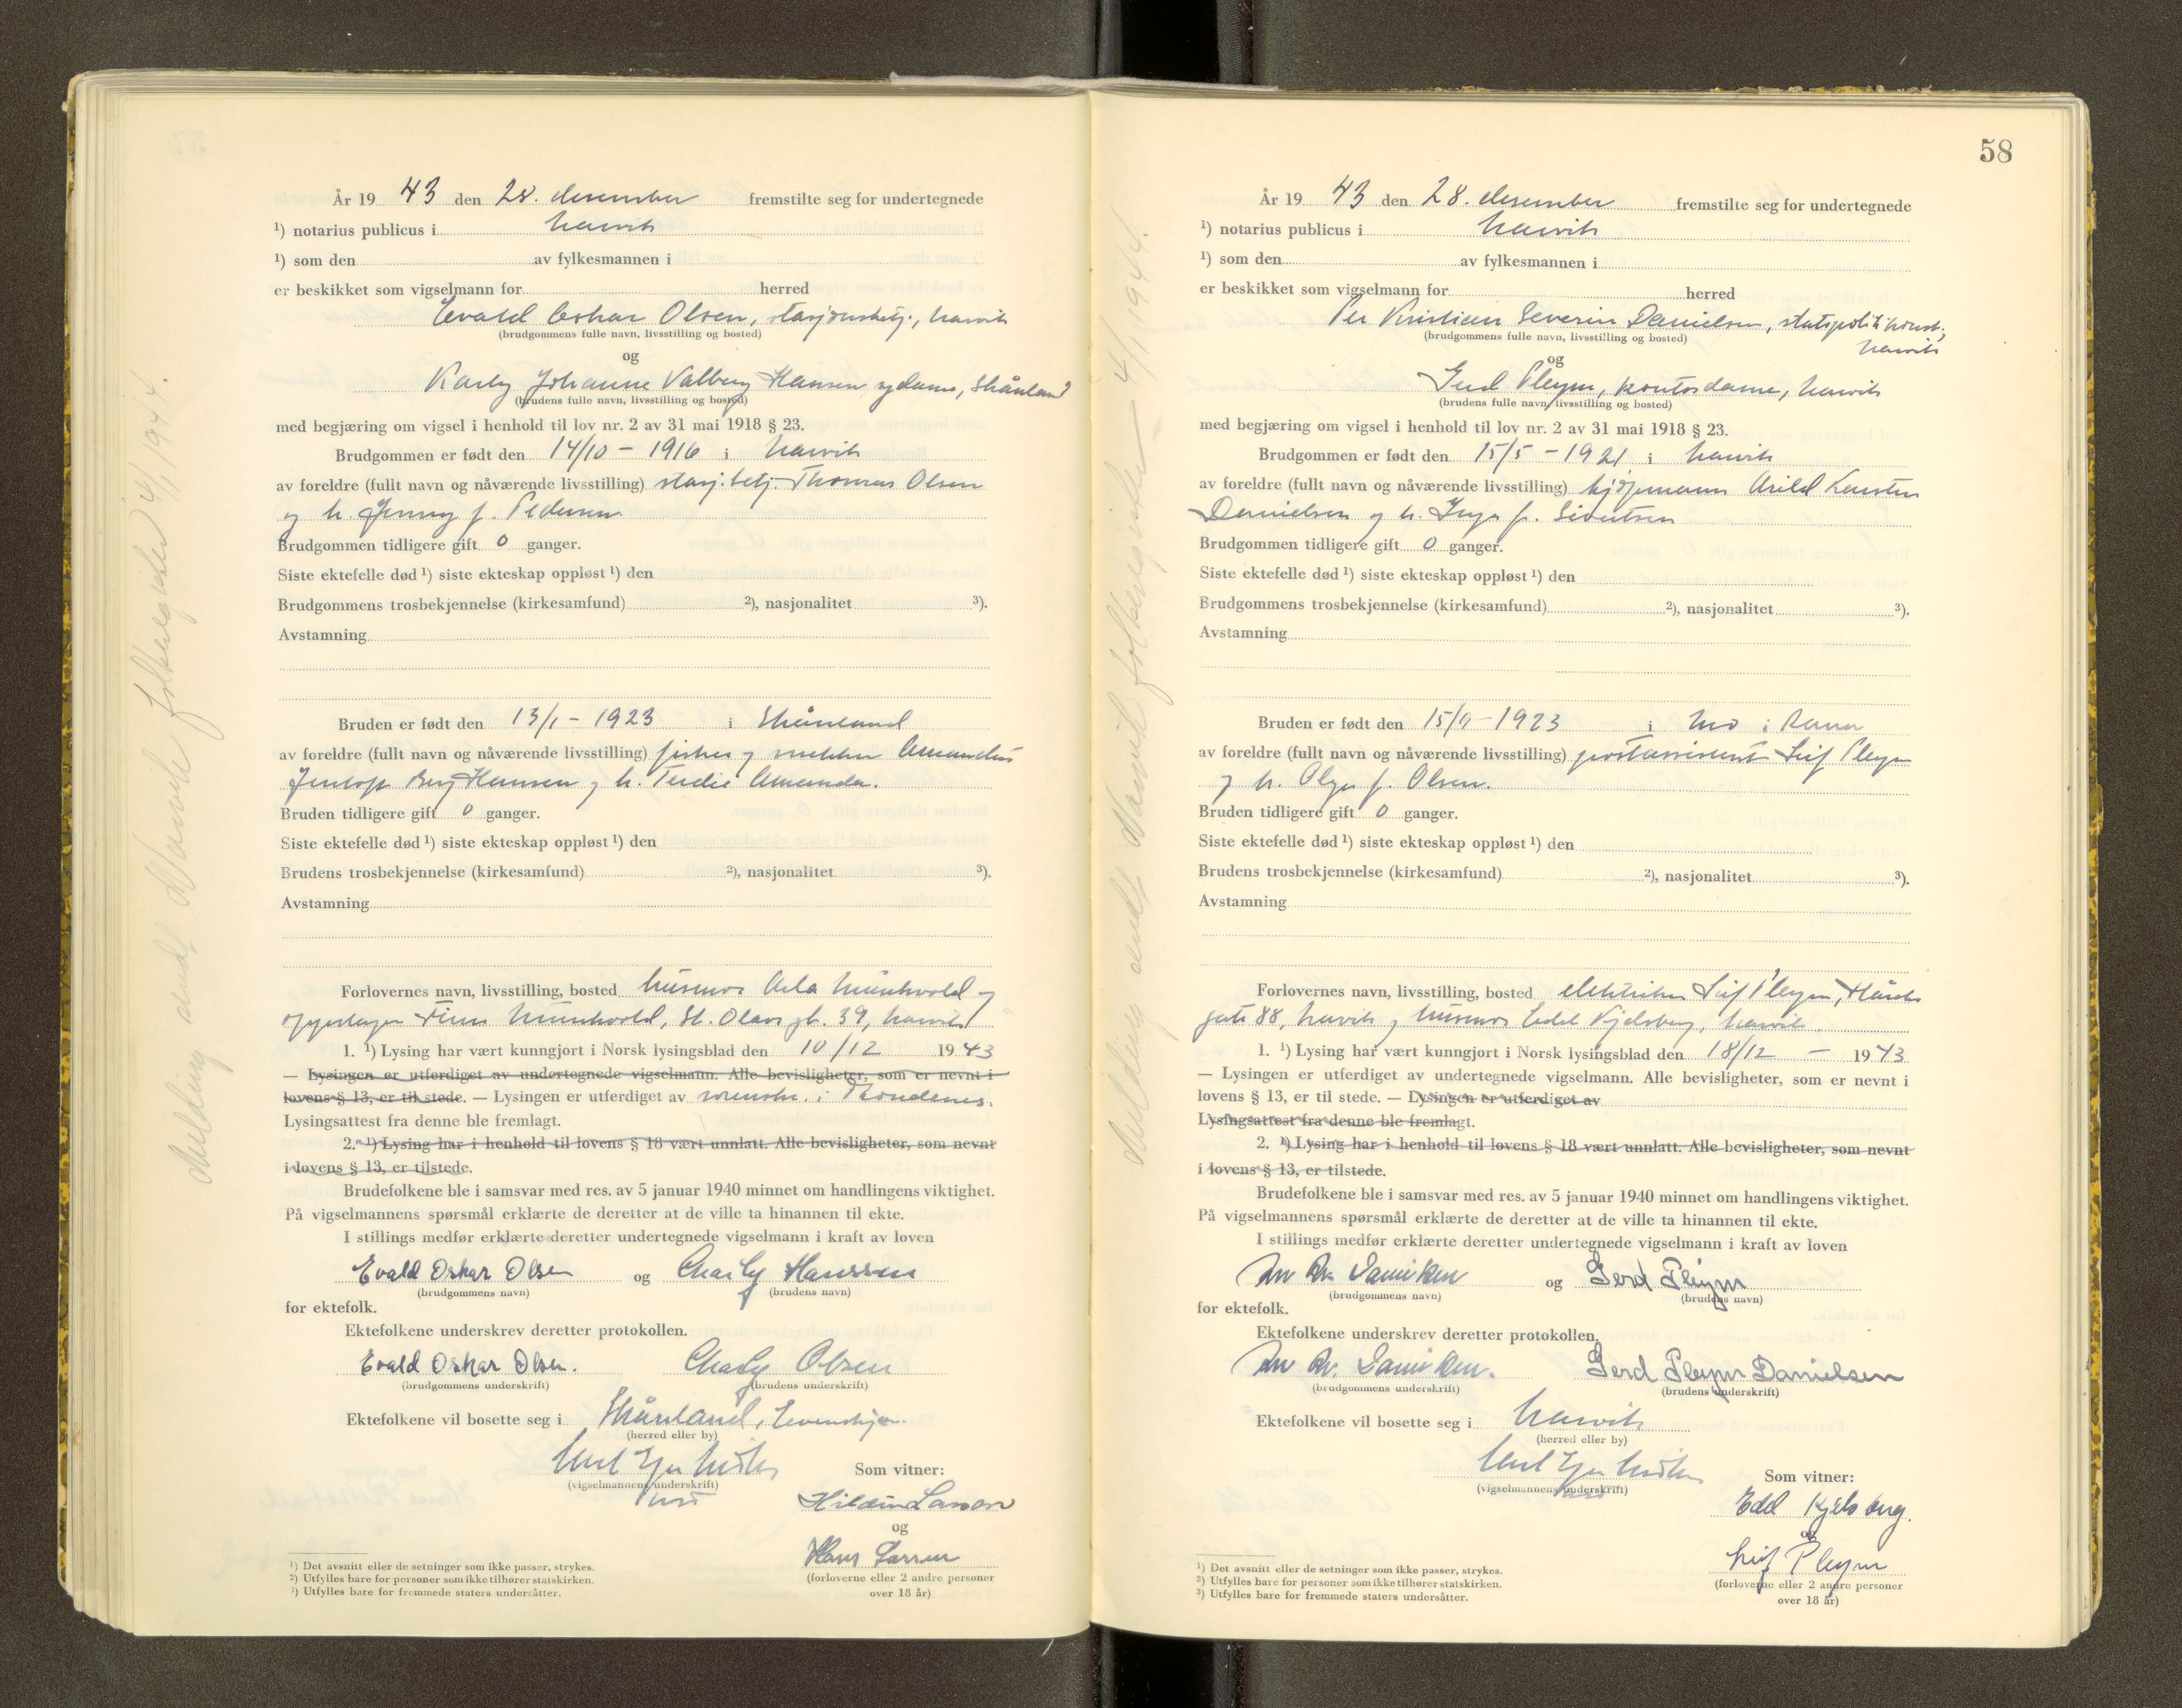 År 19 43 den 28. desember fremstilte seg for undertegnede
¹) notarius publicus i Narvik
¹) som den av fylkesmannen i
er beskikket som vigselmann for herred
Evald Oskar Olsen, stasjonsbetj., Narvik
(brudgommens fulle navn, livsstilling og bosted)
og
Karly Johanne Valborg Hansen sydame, Skånland
(brudens fulle navn, livsstilling og bosted)
med begjæring om vigsel i henhold til lov nr. 2 av 31 mai 1918 § 23.
Brudgommen er født den 14/10 - 1916 i Narvik
av foreldre (fullt navn og nåværende livsstilling) stasj.betj. Thomas Olsen
og h. Jenny f. Pedersen
Brudgommen tidligere gift 0 ganger.
Siste ektefelle død ¹) siste ekteskap oppløst ¹) den
Brudgommens trosbekjennelse (kirkesamfund) ²), nasjonalitet ³).
Avstamning
Bruden er født den 13/1 - 1923 i Skånland
av foreldre (fullt navn og nåværende livsstilling) fisker og snekker Amandus
Jentoft Berg Hansen og h. Amanda.
Bruden tidligere gift 0 ganger.
Siste ektefelle død ¹) siste ekteskap oppløst ¹) den
Brudens trosbekjennelse (kirkesamfund) ²), nasjonalitet ³).
Avstamning
Forlovernes navn, livsstilling, bosted husmor og
Finn St. Olavs gt. 39, Narvik
1. ¹) Lysing har vært kunngjort i Norsk lysingsblad den 10/12 1943
— Lysingen er utferdiget av undertegnede vigselmann. Alle bevisligheter, som er nevnt i
lovens § 13, er til stede. — Lysingen er utferdiget av sorenskr. i Trondenes.
Lysingsattest fra denne ble fremlagt.
2. ¹) Lysing har i henhold til lovens § 18 vært unnlatt. Alle bevisligheter, som nevnt
i lovens § 13, er tilstede.
Brudefolkene ble i samsvar med res. av 5 januar 1940 minnet om handlingens viktighet.
På vigselmannens spørsmål erklærte de deretter at de ville ta hinannen til ekte.
I stillings medfør erklærte deretter undertegnede vigselmann i kraft av loven
Evald Oskar Olsen og Charly Hanssen
(brudgommens navn) (brudens navn)
for ektefolk.
Ektefolkene underskrev deretter protokollen.
Evald Oskar Olsen. Charly Olsen
(brudgommens underskrift) (brudens underskrift)
Ektefolkene vil bosette seg i Skånland, Evenskjer.
(herred eller by)
Som vitner:
(vigselmannens underskrift)
Larsen
og
Hans Larsen
(forloverne eller 2 andre personer
over 18 år)
¹) Det avsnitt eller de setninger som ikke passer, strykes.
²) Utfylles bare for personer som ikke tilhører statskirken.
³) Utfylles bare for fremmede staters undersåtter.
Melding sendt Narvik folkeregister 4/1 1944.
58
År 19 43 den 28. desember fremstilte seg for undertegnede
¹) notarius publicus i Narvik
¹) som den av fylkesmannen i
er beskikket som vigselmann for herred
Per Kristian Severin Danielsen, statspolitikonst.,
Narvik
(brudgommens fulle navn, livsstilling og bosted)
og
Gerd Pleym, kontordame, Narvik
(brudens fulle navn, livsstilling og bosted)
med begjæring om vigsel i henhold til lov nr. 2 av 31 mai 1918 § 23.
Brudgommen er født den 15/5 - 1921 i Narvik
av foreldre (fullt navn og nåværende livsstilling) kjøpmann Arild Karsten
Danielsen og h. Inga f. Sivertsen
Brudgommen tidligere gift 0 ganger.
Siste ektefelle død ¹) siste ekteskap oppløst ¹) den
Brudgommens trosbekjennelse (kirkesamfund) ²), nasjonalitet ³).
Avstamning
Bruden er født den 15/9 - 1923 i Mo i Rana
av foreldre (fullt navn og nåværende livsstilling) postassistent Leif Pleym
og h. Olga f. Olsen.
Bruden tidligere gift 0 ganger.
Siste ektefelle død ¹) siste ekteskap oppløst ¹) den
Brudens trosbekjennelse (kirkesamfund) ²), nasjonalitet ³).
Avstamning
Forlovernes navn, livsstilling, bosted elektriker Leif Pleym,
gate 88, Narvik og husmor Edel Kjelsberg, Narvik.
1. ¹) Lysing har vært kunngjort i Norsk lysingsblad den 18/12 — 1943
— Lysingen er utferdiget av undertegnede vigselmann. Alle bevisligheter, som er nevnt i
lovens § 13, er til stede. — Lysingen er utferdiget av
Lysingsattest fra denne ble fremlagt.
2. ¹) Lysing har i henhold til lovens § 18 vært unnlatt. Alle bevisligheter, som nevnt
i lovens § 13, er tilstede.
Brudefolkene ble i samsvar med res. av 5 januar 1940 minnet om handlingens viktighet.
På vigselmannens spørsmål erklærte de deretter at de ville ta hinannen til ekte.
I stillings medfør erklærte deretter undertegnede vigselmann i kraft av loven
Per Kr. Danielsen og Gerd Pleym
(brudgommens navn) (brudens navn)
for ektefolk.
Ektefolkene underskrev deretter protokollen.
Per Kr. Danielsen. Gerd Pleym Danielsen
(brudgommens underskrift) (brudens underskrift)
Ektefolkene vil bosette seg i Narvik
(herred eller by)
Som vitner:
(vigselmannens underskrift)
Edel Kjelsberg.
og
Leif Pleym
(forloverne eller 2 andre personer
over 18 år)
¹) Det avsnitt eller de setninger som ikke passer, strykes.
²) Utfylles bare for personer som ikke tilhører statskirken.
³) Utfylles bare for fremmede staters undersåtter.
Melding sendt Narvik folkeregister 4/1 1944.